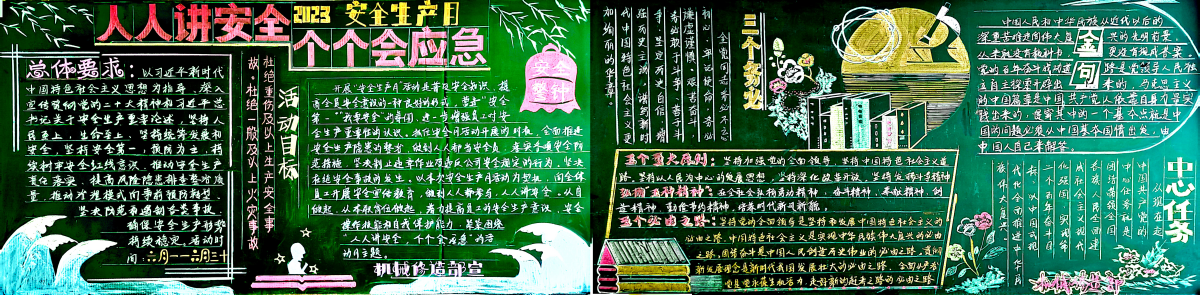 人人讲安全
2023 安全生产月
个个会应急
安全
警钟
总体要求：以习近平新时代
中国特色社会主义思想为指导，深入
宣传贯彻党的二十大精神和习近平总
书记关于安全生产重要论述，坚持人
民至上、生命至上，坚持统筹发展和
安全，坚持安全第一，预防为主，
树牢安全红线意识，推动安全生产
责任落实，提高风险隐患排查整改质
量，推动治理模式向事前预防转型，
坚决防范和遏制各类事故，
确保安全生产形势
持续稳定。活动时
间：六月一一六月三十
活动目标
杜绝重伤及以上生产安全事
故，杜绝一般及以上火灾事故
开展"安全生产月"活动是普及安全知识，提
高全员安全意识的一种良好的形式，
全生产重要性的认识。抓住安全月活动开展的时机，全面推进
安全生产隐患的整治，做到人人都当安全员，
范措施，坚决制止违章作业及违反公司安全规定的行为，坚决
杜绝安全事故的发生。以本次安全生产月活动为契机，向全体
员工开展安全宣传教育，做到人人都要学，人人讲安全。从自
做起，从本职岗位做起，着力提高员工的安全生产意识，安全
操作技能和自我保护能力，
"人人讲安全，个个会应急"的活
动月主题。
机械修造部宣
三个务必
全党同志务必不忘
初心、牢记使命，务必
谦虚谨慎、艰苦奋斗，
务必敢于斗争、善于斗
争，坚定历史自信，增
强历史主动，谱写新时
代中国特色社会主义更
加绚丽的华章。
金句
中国人民和中华民族从近代以后的
深重苦难走向伟大复兴的光明前景，
从来就没有教科书，更没有现成答案。
党的百年奋斗成功道路是党领导人民独
立自主探索开辟出来的，马克思主义
的中国篇章是中国共产党人依靠自身力量实
践出来的，贯穿其中的一个基本点就是中
国的问题必须从中国基本国情出发，由
中国人自己来解答。
五个重大原则：坚持和加强党的全面领导，坚持中国特色社会主义道
路，坚持以人民为中心的发展思想，坚持深化改革开放，坚持发扬斗争精神
在全社会弘扬劳动精神，奋斗精神，奉献精神，创
造精神，勤俭节约精神，培养时代新风新貌
五个必由之路：坚持党的全面领导是坚持和发展中国特色社会主义的
必由之路，中国特色社会主义是实现中华民族伟大复兴的必由
之路，团结奋斗是中国人民创造历史伟业的必由之路，贯彻
新发展理念是新时代我国发展壮大的必由之路，全面从严治
党是党永葆生机活力、走好新的赶考之路的必由之路
中心任务
从现在起，
中国共产党的
中心任务就是
团结带领全国
各族人民全面建
成社会主义现
代化强国、实现第
二个百年奋斗目
标，以中国式现
代化全面推进中华民
族伟大复兴。